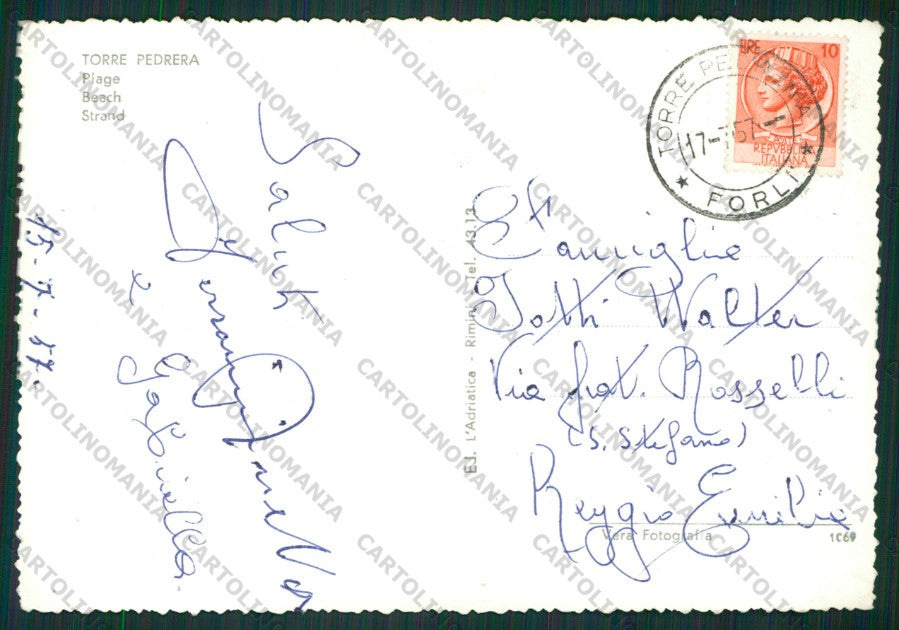 TORRE PEDRERA
Plage
Beach
Strand
Saluti
e Gabriella
15-7-57.
Ed. L'Adriatica - Rimini - Tel. 43.13
LIRE 10
REPVBBLICA
ITALIANA
TORRE PEDRERA
17-7-57
* FORLI *
Famiglia
Iotti Walter
Via frat. Rosselli
(S. Stefano)
Reggio Emilia
Vera Fotografia
1C69
CARTOLINOMANIA